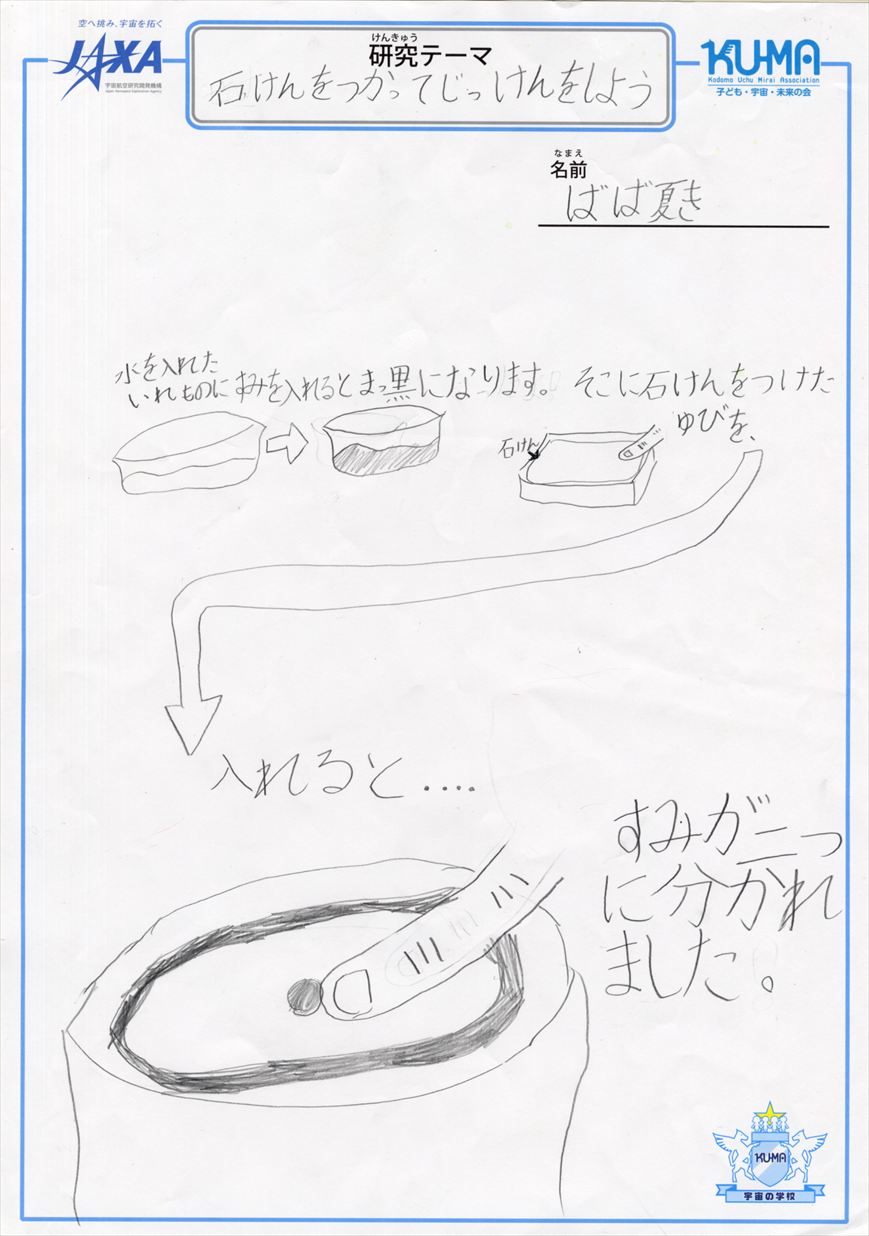 空へ挑み、宇宙を拓く
JAXA
宇宙航空研究開発機構
Japan Aerospace Exploration Agency
けんきゅう
研究テーマ
石けんをつかってじっけんをしよう
KU-MA
Kodomo Uchu Mirai Association
子ども・宇宙・未来の会
なまえ
名前
ばば夏き
水を入れた
いれものにすみを入れるとまっ黒になります。そこに石けんをつけた
ゆびを、
石けん
入れると‥‥
すみが二つ
に分かれ
ました。
KU-MA
宇宙の学校